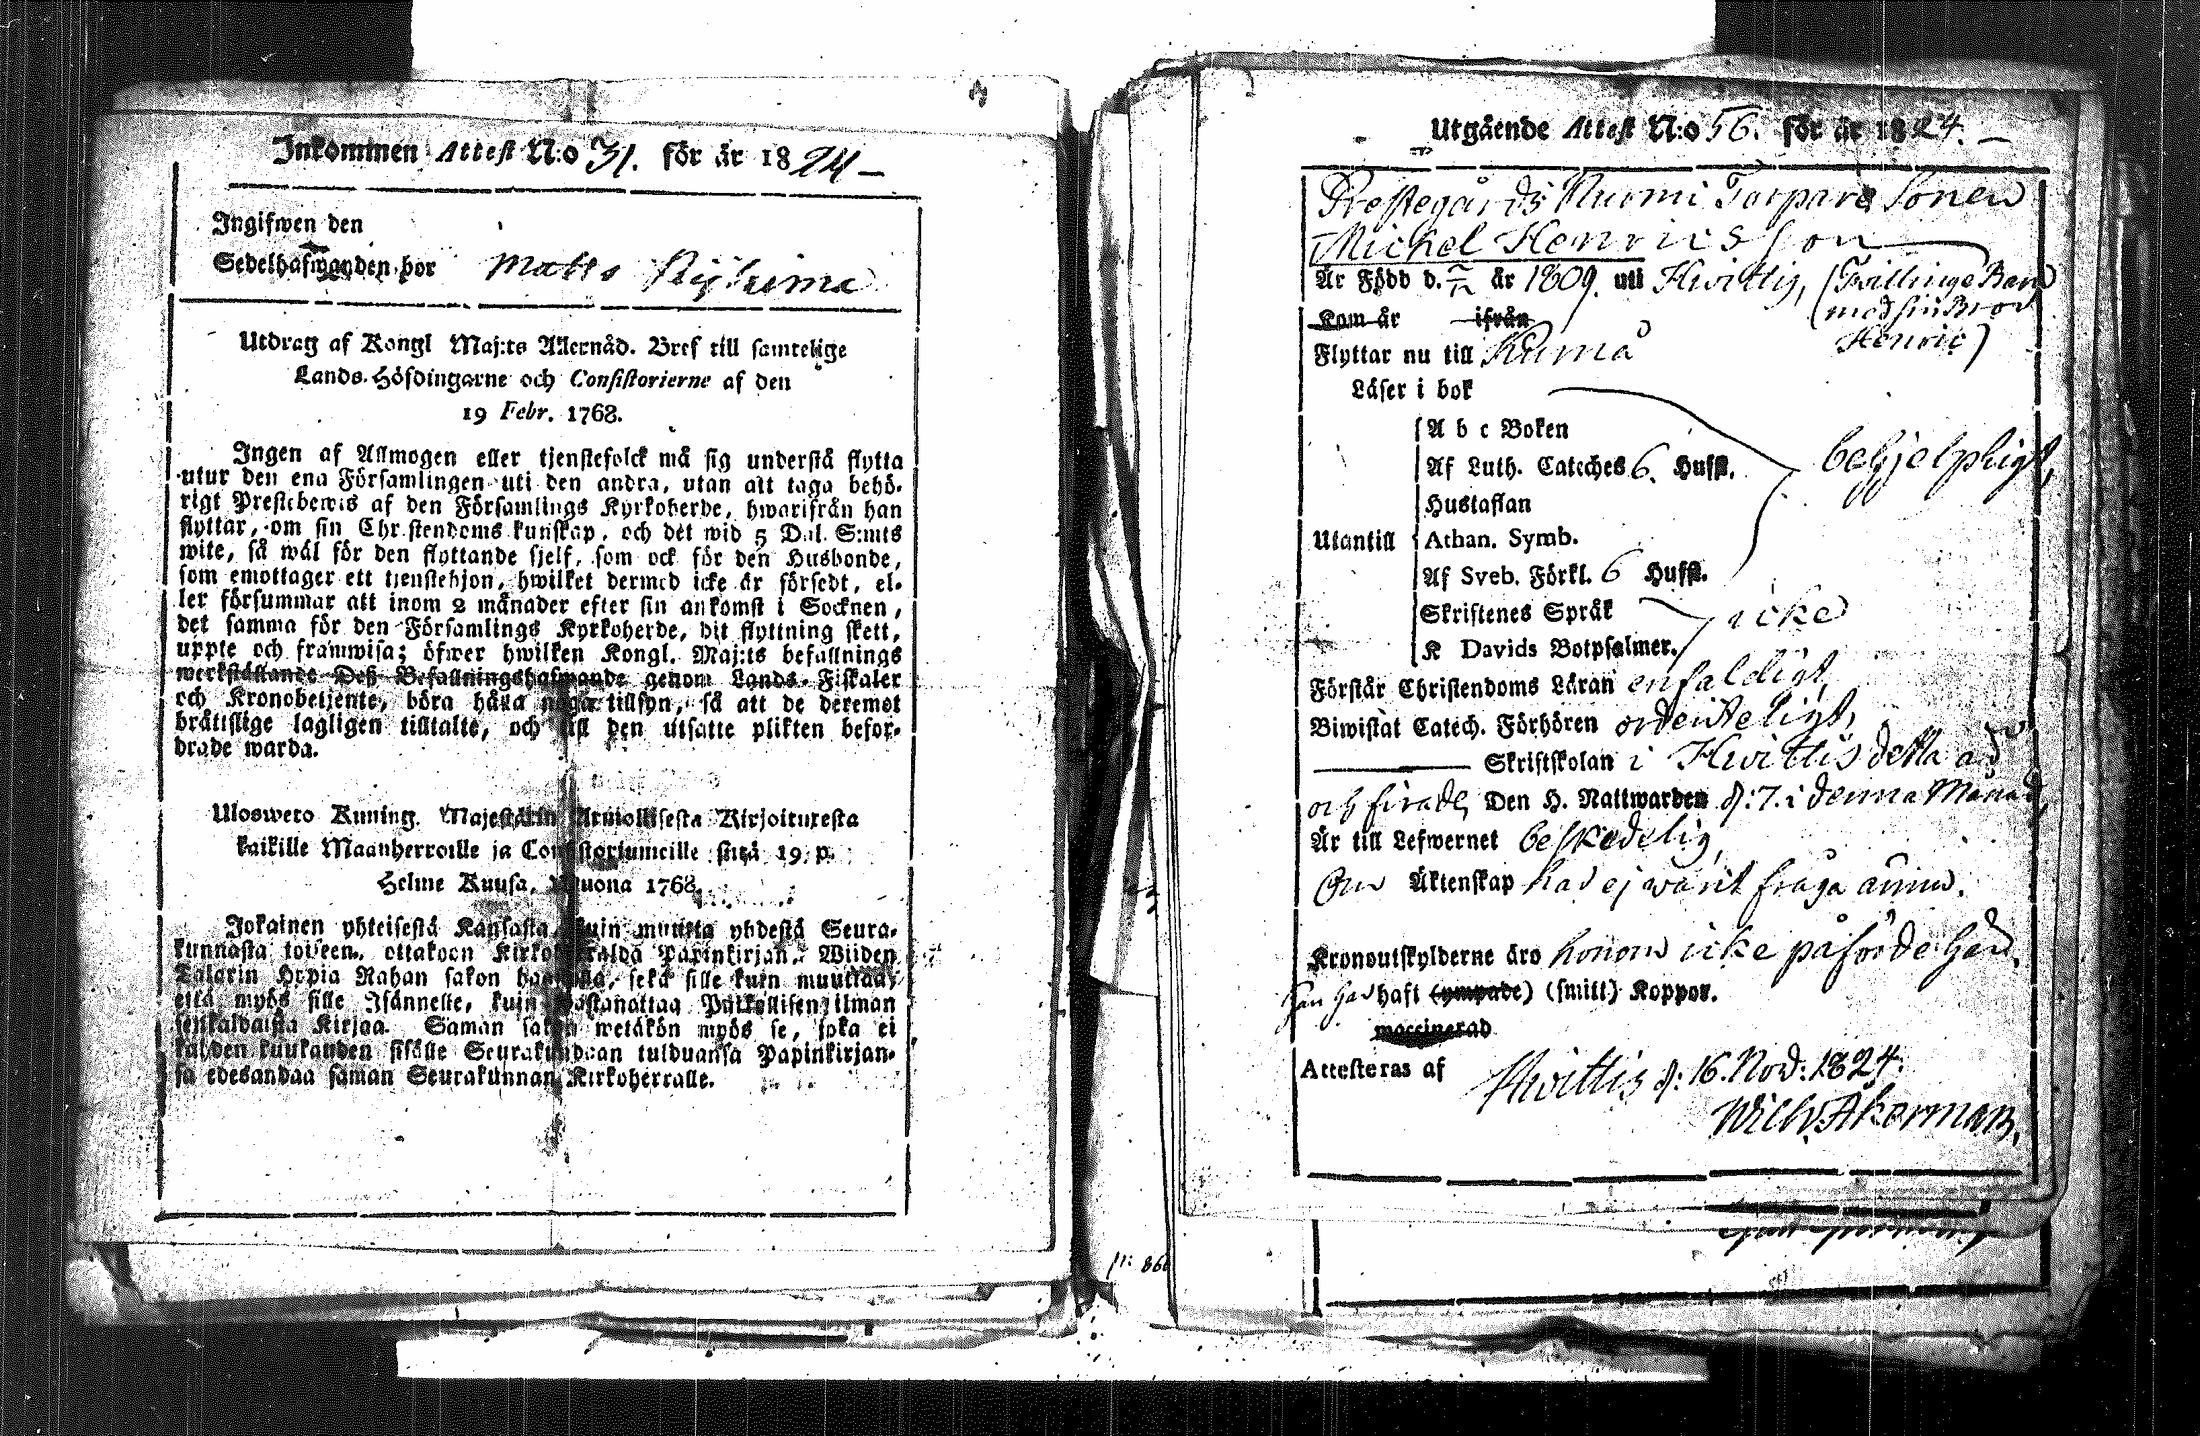 Inkommen Attest N:o 31. för år 1824 –
Ingifwen den
Sedelhafwanden bor Matts
Utdrag af Kongl Maj:ts Allernåd. Bref till samtelige
Lands-Höfdingarne och Consistorierne af den
19 Febr. 1768.
Ingen af Allmogen eller tjenstefolck må sig understå flytta
utur den ena Församlingen uti den andra, utan att taga behö-
rigt Prestebewis af den Församlings Kyrkoherde, hwarifrån han
flyttar, om sin Christendoms kunskap, och det wid 5 Dal. S:mts
wite, så wäl för den flyttande sjelf, som ock för den Husbonde,
som emottager ett tjenstehjon, hwilket dermed icke är försedt, el-
ler försummar att inom 2 månader efter sin ankomst i Socknen,
det samma för den Församlings Kyrkoherde, dit flyttning skett,
uppte och framwisa; öfwer hwilken Kongl. Maj:ts befallnings
werkställande Deß Befallningshafwande genom Lands-Fiskaler
och Kronobetjente, böra hålla noga tillsyn, så att de deremot
bråttslige lagligen tilltalte, och till den utsatte plikten befor-
drade warda.
Ulosweto Kuning. Majestätin Armollisesta Kirjoituxesta
kaikille Maanherroille ja Consistoriumeille siitä 19. p.
Helme Kuusa, Wuona 1768.
Jokainen yhteisestä Kansasta, kuin muutta yhdestä Seura-
kunnasta toiseen, ottakoon Kirkoherralda Papinkirjan, Wiiden
Talarin Hopia Rahan sakon haastolla, sekä sille kuin muuttaa,
että myös sille Isännelle, kuin wastanottaa Palkollisen, ilman
senkaldaista Kirjaa. Saman sakon wetäkön myös se, joka ei
kahden kuukauden sisälle Seurakundaan tulduansa Papinkirjan-
sa edesandaa saman Seurakunnan Kirkoherralle.
Utgående Attest N:o 56. för år 1824. –
Prestegårds Nurmi Torpare Sonen
Michel Henricsson
Är Född d. år 1809. uti Hwittis, (Twillinge Barn
med sin Bror
Henric)
Kom år ifrån
Flyttar nu till Kumå
Läser i bok
A b c Boken
Af Luth. Cateches 6. Hufst. behjelpligt,
Hustaflan
Utantill Athan. Symb.
Af Sveb. Förkl. 6 Hufst.
Skriftenes Språk icke
K Davids Botpsalmer.
Förstår Christendoms Läran enfaldigt,
Biwistat Catech. Förhören ordenteligt,
Skriftskolan i Hwittis detta år
och firade Den H. Nattwarden d: 7. i denna Månad,
Är till Lefwernet beskedelig,
Om Äktenskap har ej warit fråga ännu.
Kronoutskylderne äro honom icke påförde här.
Han har haft (ympade) (smitt) Koppor.
vaccinerad
Attesteras af Hwittis d: 16. Nov: 1824.
Wilh. Åkerman,
p: 86